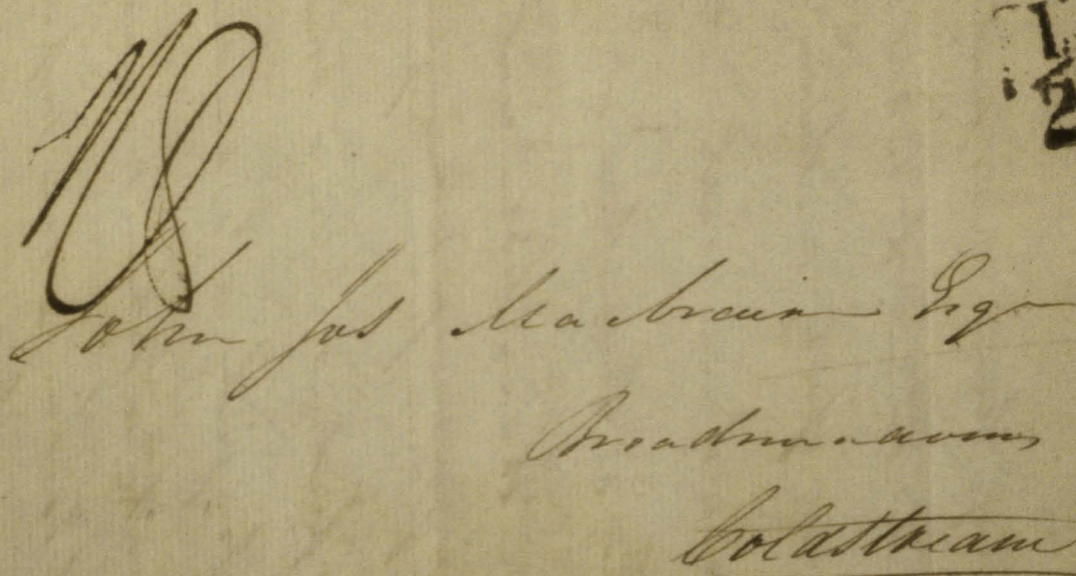 1
2
John Jas Macbraire Esqr
Broadmeadows
Coldstream